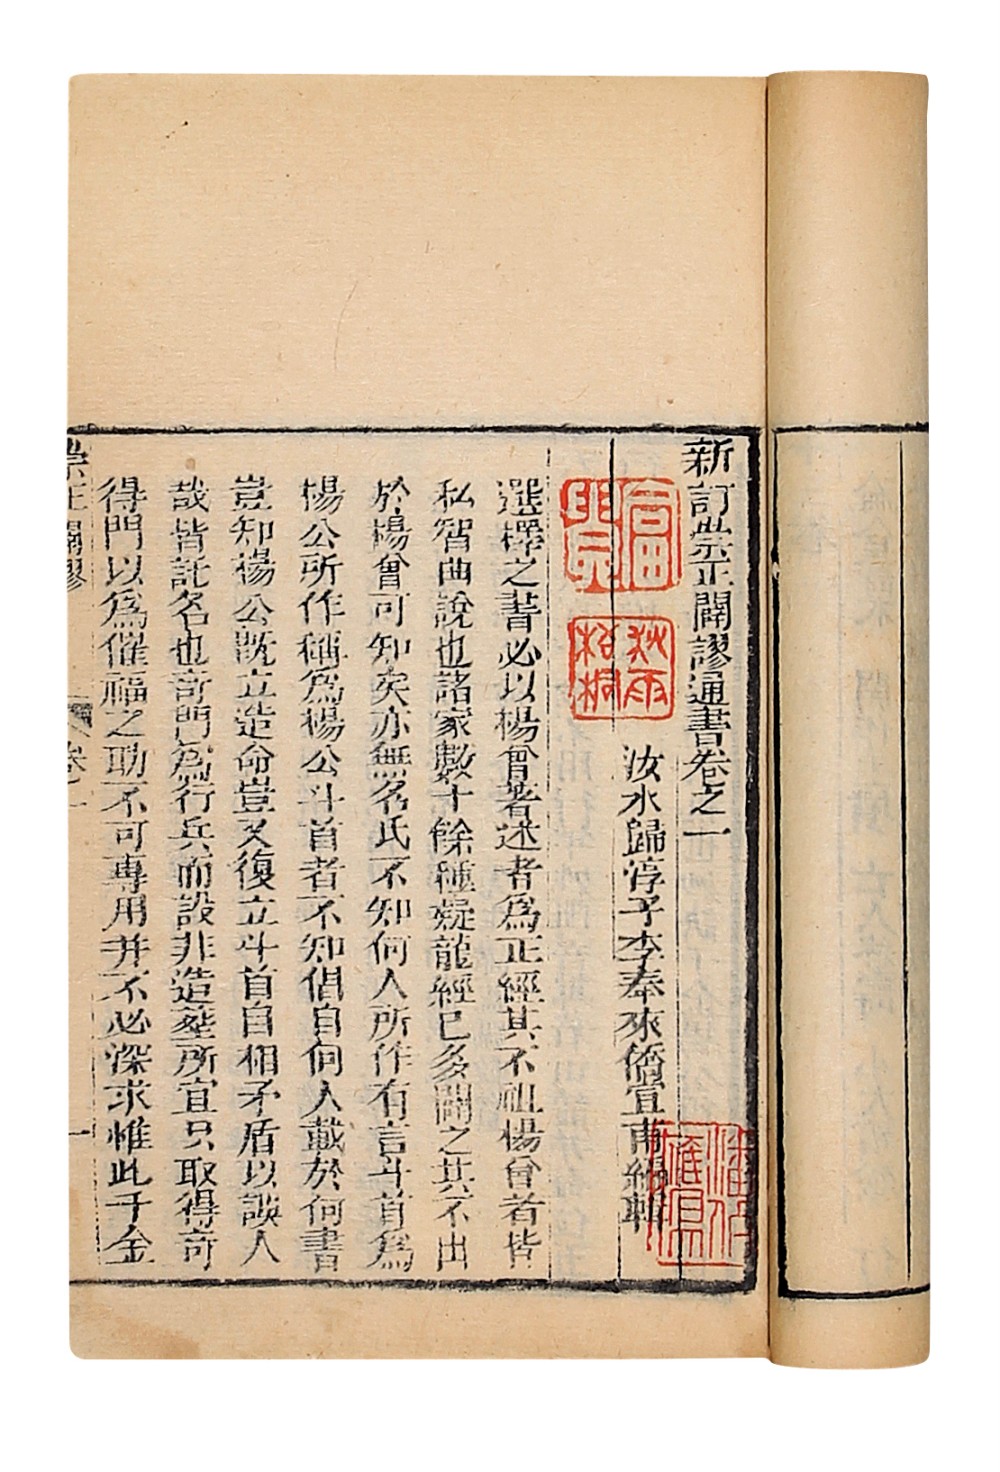 新訂崇正闢謬通書卷之一
汝水歸淳子李奉來儕宣甫編輯
選擇之書必以楊曾著述者爲正經其不祖楊曾者皆
私智曲說也諸家數十餘種疑龍經已多闢之其不出
於楊曾可知矣亦無名氏不知何人所作有言斗首爲
楊公所作稱爲楊公斗首者不知倡自何人載於何書
豈知楊公旣立造命豈又復立斗首自相矛盾以談人
哉皆託名也竒門爲行兵而設非造塟所宜只取得竒
得門以爲催福之助不可專用并不必深求惟此千金
崇正闢謬 卷之一 一
秋雨
梧桐